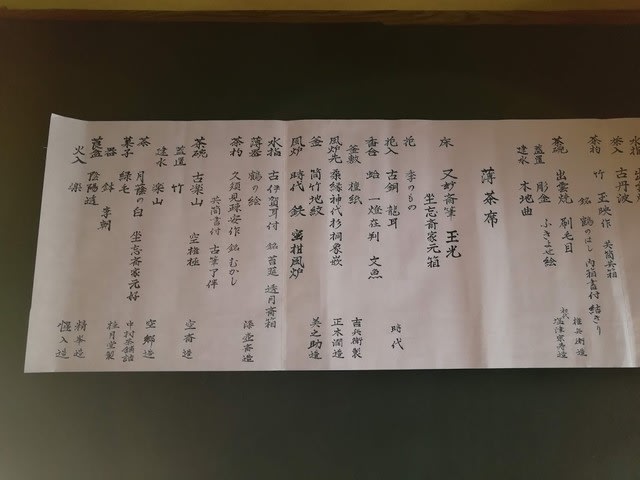 水指
茶入 古丹波
茶杓 竹 玉映作 共筒共箱
銘 鶴のはし 内箱書付 結ぎり
茶碗 出雲焼 刷毛目
蓋置 彫金 ふきよせ絵
建水 木地曲
薄茶席
床 又妙斎筆 玉光
坐忘斎家元箱
花 季のもの
花入 古銅 龍耳 時代
香合 蛤 一燈在判 文魚
釜敷 檀紙 吉兵衛製
風炉先 桑縁神代杉桐象嵌 正木潤造
釜 筒竹地紋 美之助造
風炉 時代 鉄 蜜柑風炉
水指 古伊賀耳付 銘 苔莚 透月斎箱
薄器 鶴の絵 漆壺斎造
茶杓 久須見疎安作 銘 むかし
共筒書付 古筆了伴
茶碗 古楽山 空権極
蓋置 竹 空斎造
建水 楽山 空郷造
茶 月蔭の白 坐忘斎家元好 中村茶舗詰
菓子 緑毛 桂月堂製
器 鉢 李朝
莨盆 陰陽透 精峯造
火入 楽 惺入造